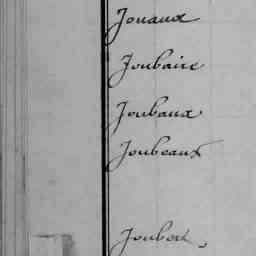 Jouaux
Joubaire
Joubaux
Joubeaux
Joubert,